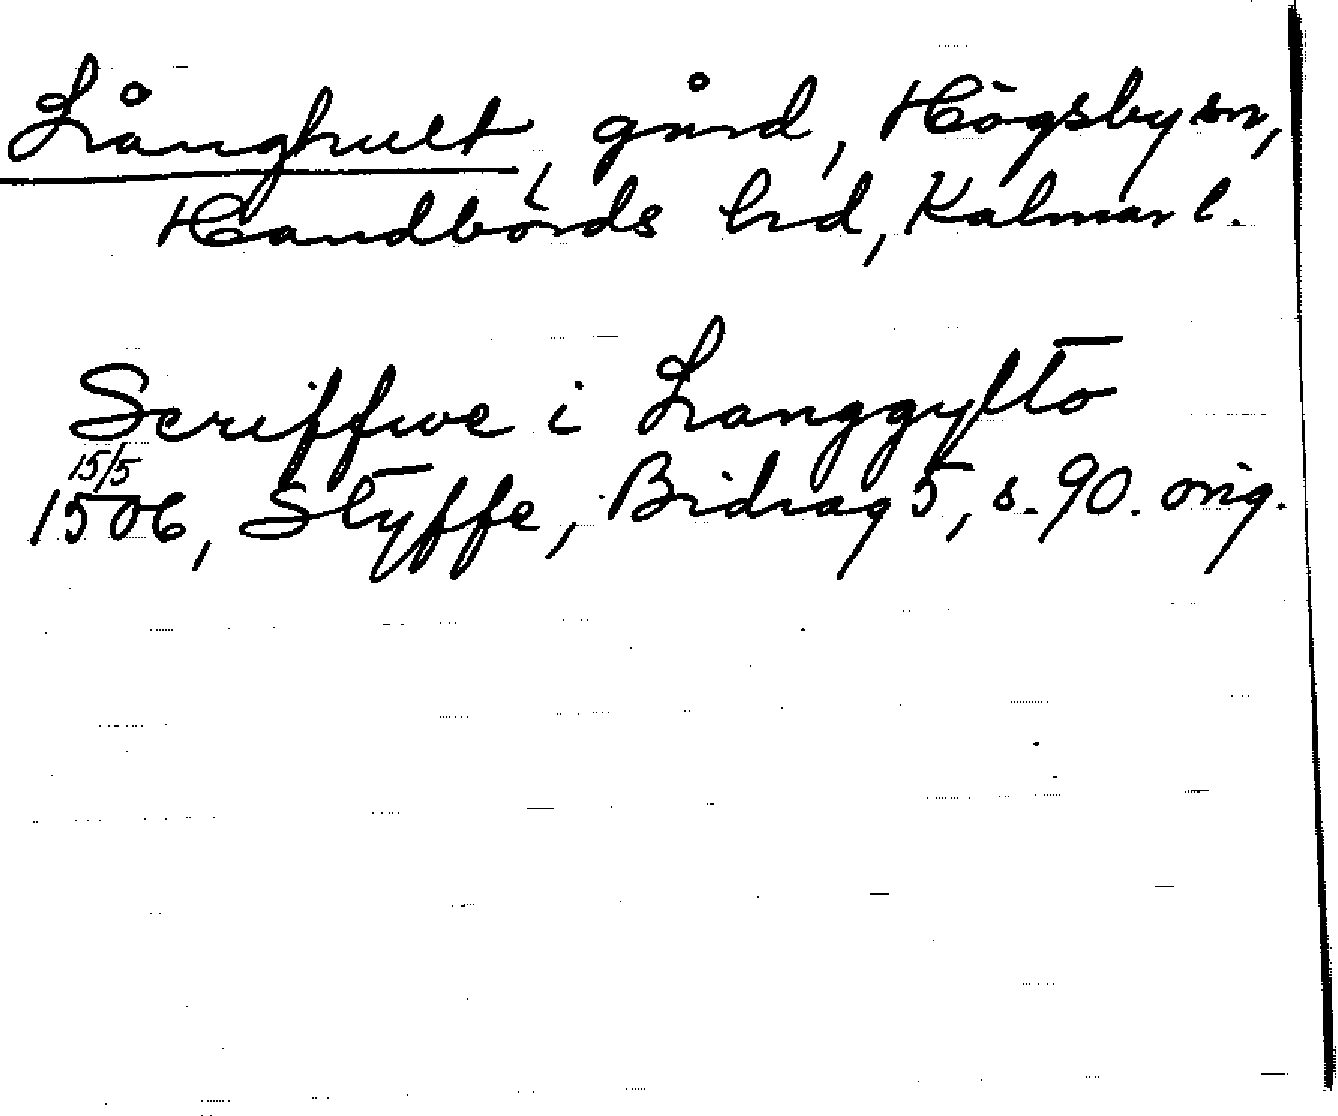 Långhult, gård, Högsby sn,
Handbörds hd, Kalmar l.
Scriffwe i Langgylto
15/5
1506, Styffe, Bidrag 5, s. 90. orig.